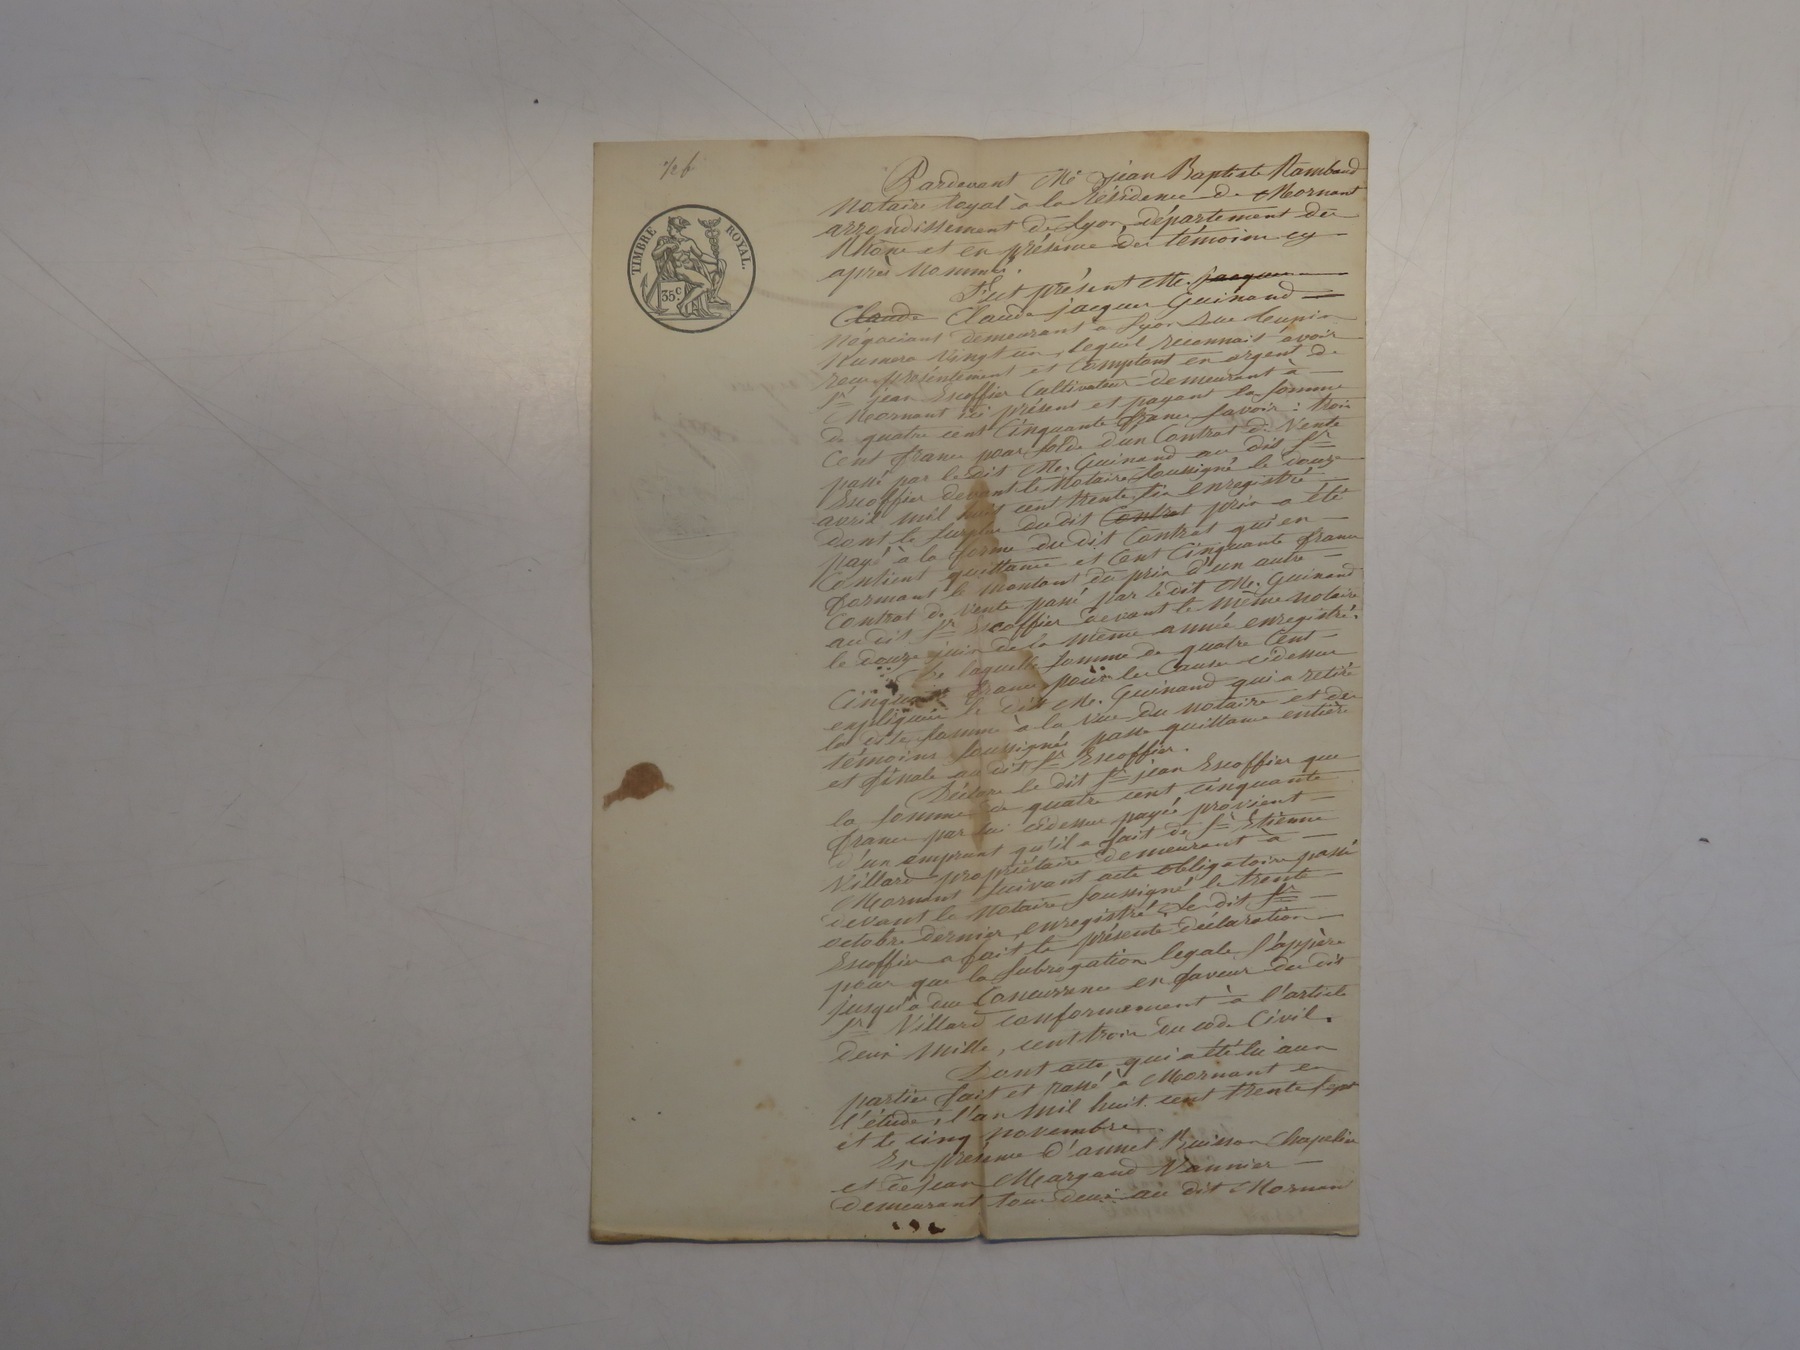 Pardevant Me jean Baptiste Rambaud
Notaire Royal à la Résidence de Mornant
arrondissement de Lyon, département du
Rhône et en présence des témoins cy
après nommés.
TIMBRE ROYAL.
35c.
Fut présent Mr. jacques
Claude Claude jacques Guinand
Négociant demeurant à Lyon Rue
Numéro vingt un, lequel reconnait avoir
reçu présentement et Comptant en argent de
Sr jean Escoffier Cultivateur demeurant à
Mornant ici présent et payant la somme
de quatre cent Cinquante francs savoir : trois
Cent francs pour solde d'un Contrat de Vente
passé par le dit Mr. Guinand au dit Sr
Escoffier devant le Notaire soussigné le douze
avril mil huit cent trente six enregistré
dont le surplus du dit Contrat prix a été
payé à la forme du dit Contrat qui en
Contient quittance et Cent Cinquante francs
formant le montant du prix d'un autre
Contrat de Vente passé par le dit Mr. Guinand
au dit Sr Escoffier devant le même notaire
le douze juin de la même année enregistré.
De laquelle somme de quatre Cent
Cinquante francs pour les Causes cidessus
expliquées le dit Mr. Guinand qui a retiré
la dite somme à la vue du notaire et des
témoins soussignés passe quittance entière
et finale au dit Sr Escoffier.
Déclare le dit Sr jean Escoffier que
la somme de quatre cent cinquante
francs par lui cidessus payée provient
d'un emprunt qu'il a fait de Sr Etienne
Villard propriétaire demeurant à
Mornant suivant acte obligatoire passé
devant le Notaire soussigné le trente
octobre dernier, enregistré. Le dit Sr
Escoffier a fait la présente déclaration
pour que la subrogation legale s'opère
jusqu'à due Concurrence en faveur du dit
Sr Villard conformement à l'article
deux mille, cent trois du code Civil.
Dont acte qui a été lu aux
parties fait et passé à Mornant en
l'étude, l'an mil huit cent trente sept
et le cinq novembre.
En présence d'annet Buisson Chapelier
et de jean Margaud Vannier
demeurant tous deux au dit Mornant